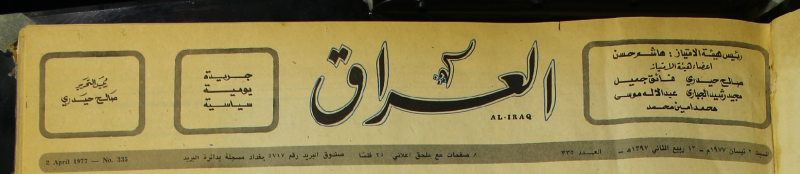 رئيس هيئة الامتياز : هاشم حسن
أعضاء هيئة الامتياز
صالح حيدري فائق جميل
مجيد رشيد الجباري عبدالاله موسى
محمد امين محمد
العراق
AL-IRAQ
جريدة
يومية
سياسية
رئيس التحرير
صالح حيدري
السبت ٢ نيسان ١٩٧٧م - ١٣ ربيع الثاني ١٣٩٧هـ - العدد ٣٣٥ ٨ صفحات مع ملحق اعلاني ٢٥ فلسا صندوق البريد رقم ٥٧١٧ بغداد مسجلة بدائرة البريد 2 April 1977 — No. 335